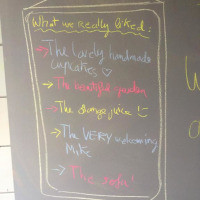 What we really liked:
→ The lovely handmade
cupcakes ♡
→ The beautiful garden
→ The orange juice !
→ The VERY welcoming
→ The sofa!